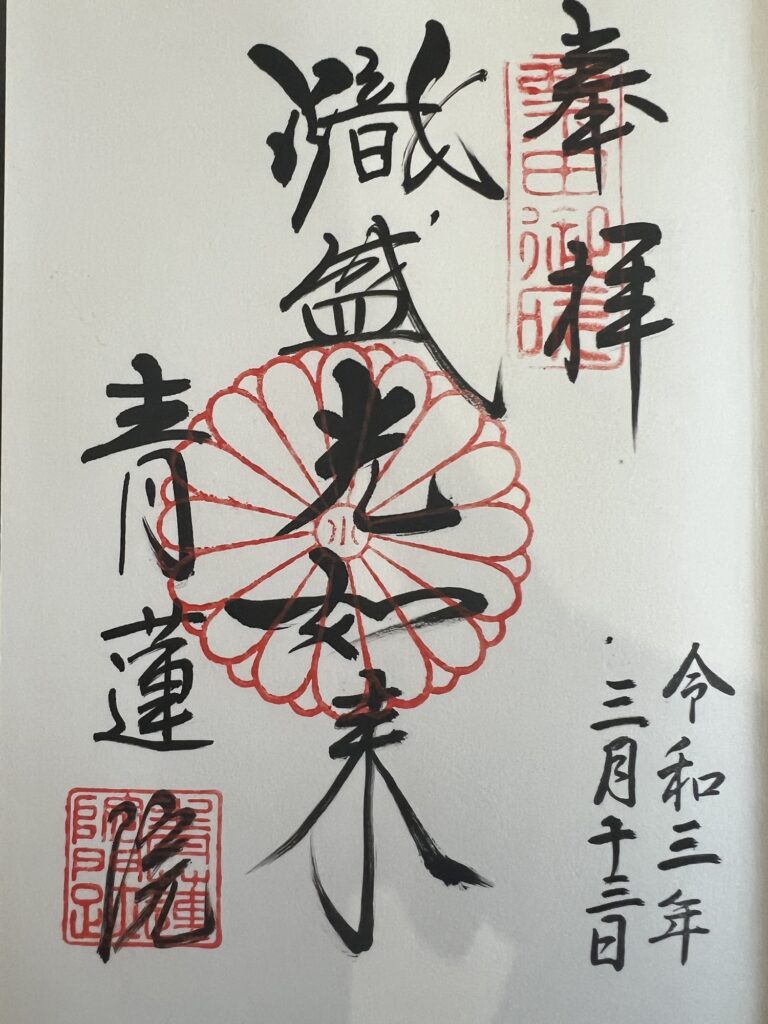 奉拝
粟田御所
令和三年
三月十三日
熾盛光如来
青蓮院